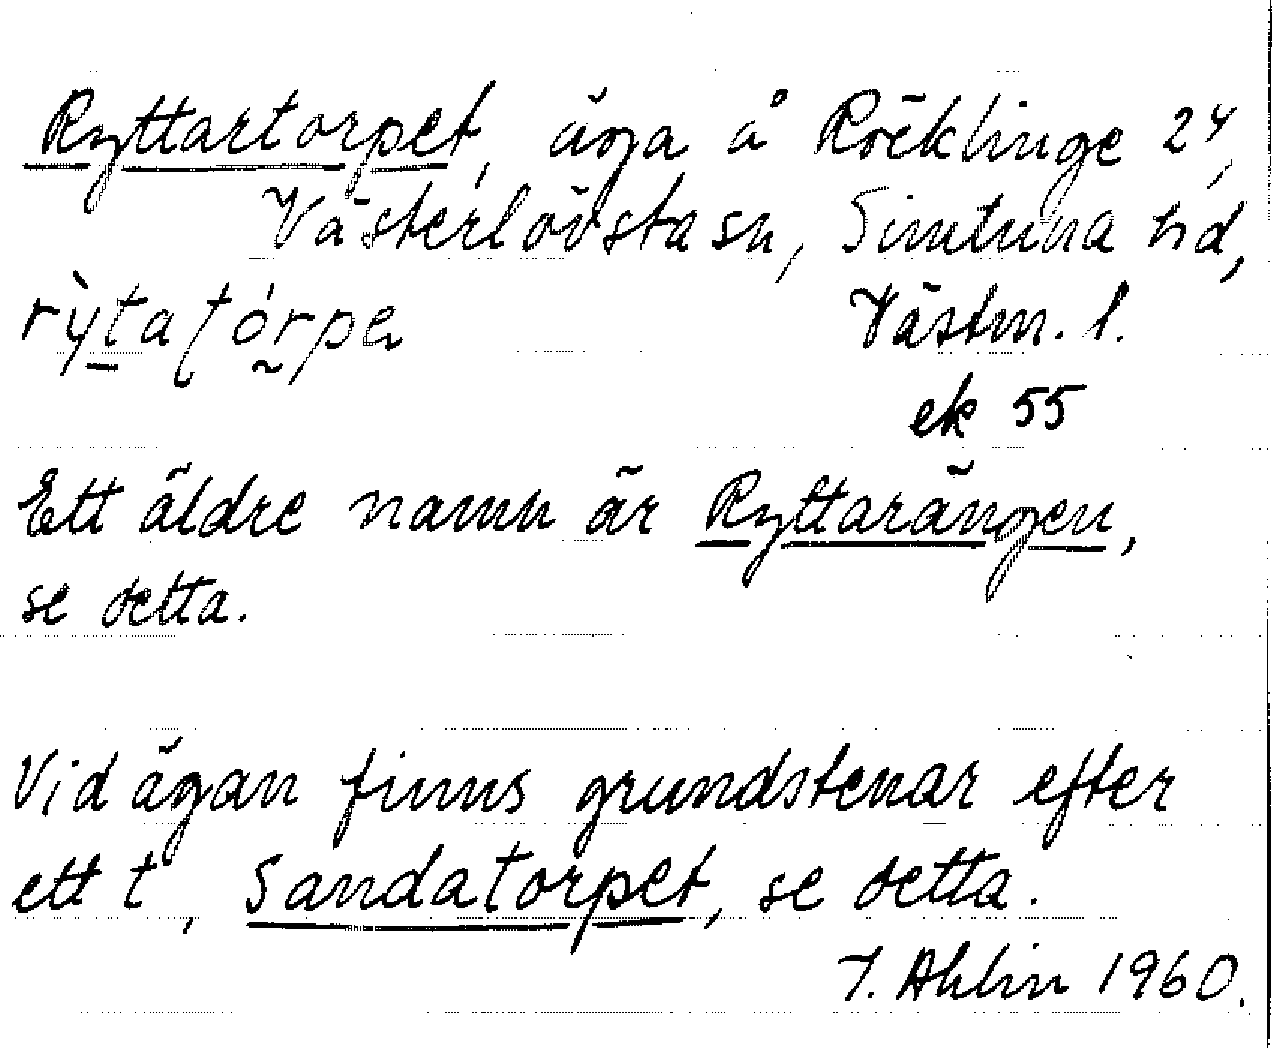 Ryttartorpet, äga å Röcklinge 24,
Västerlövsta sn, Simtuna hd,
rỳtatórpe
Västm. l.
ek 55
Ett äldre namn är Ryttarängen,
se detta.
Vid ägan finns grundstenar efter
ett t, Sandatorpet, se detta.
J. Ahlin 1960.